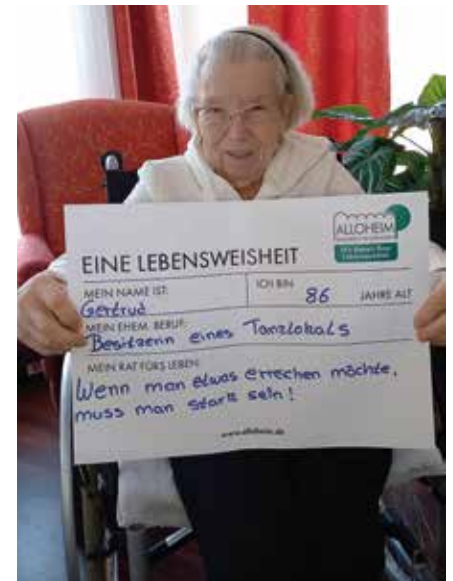 ALLOHEIM
EINE LEBENSWEISHEIT
MEIN NAME IST:
Gertrud
ICH BIN
86
JAHRE ALT
MEIN EHEM. BERUF:
Besitzerin eines Tanzlokals
MEIN RAT FÜRS LEBEN:
Wenn man etwas errechen möchte,
muss man stark sein!
www.alloheim.de